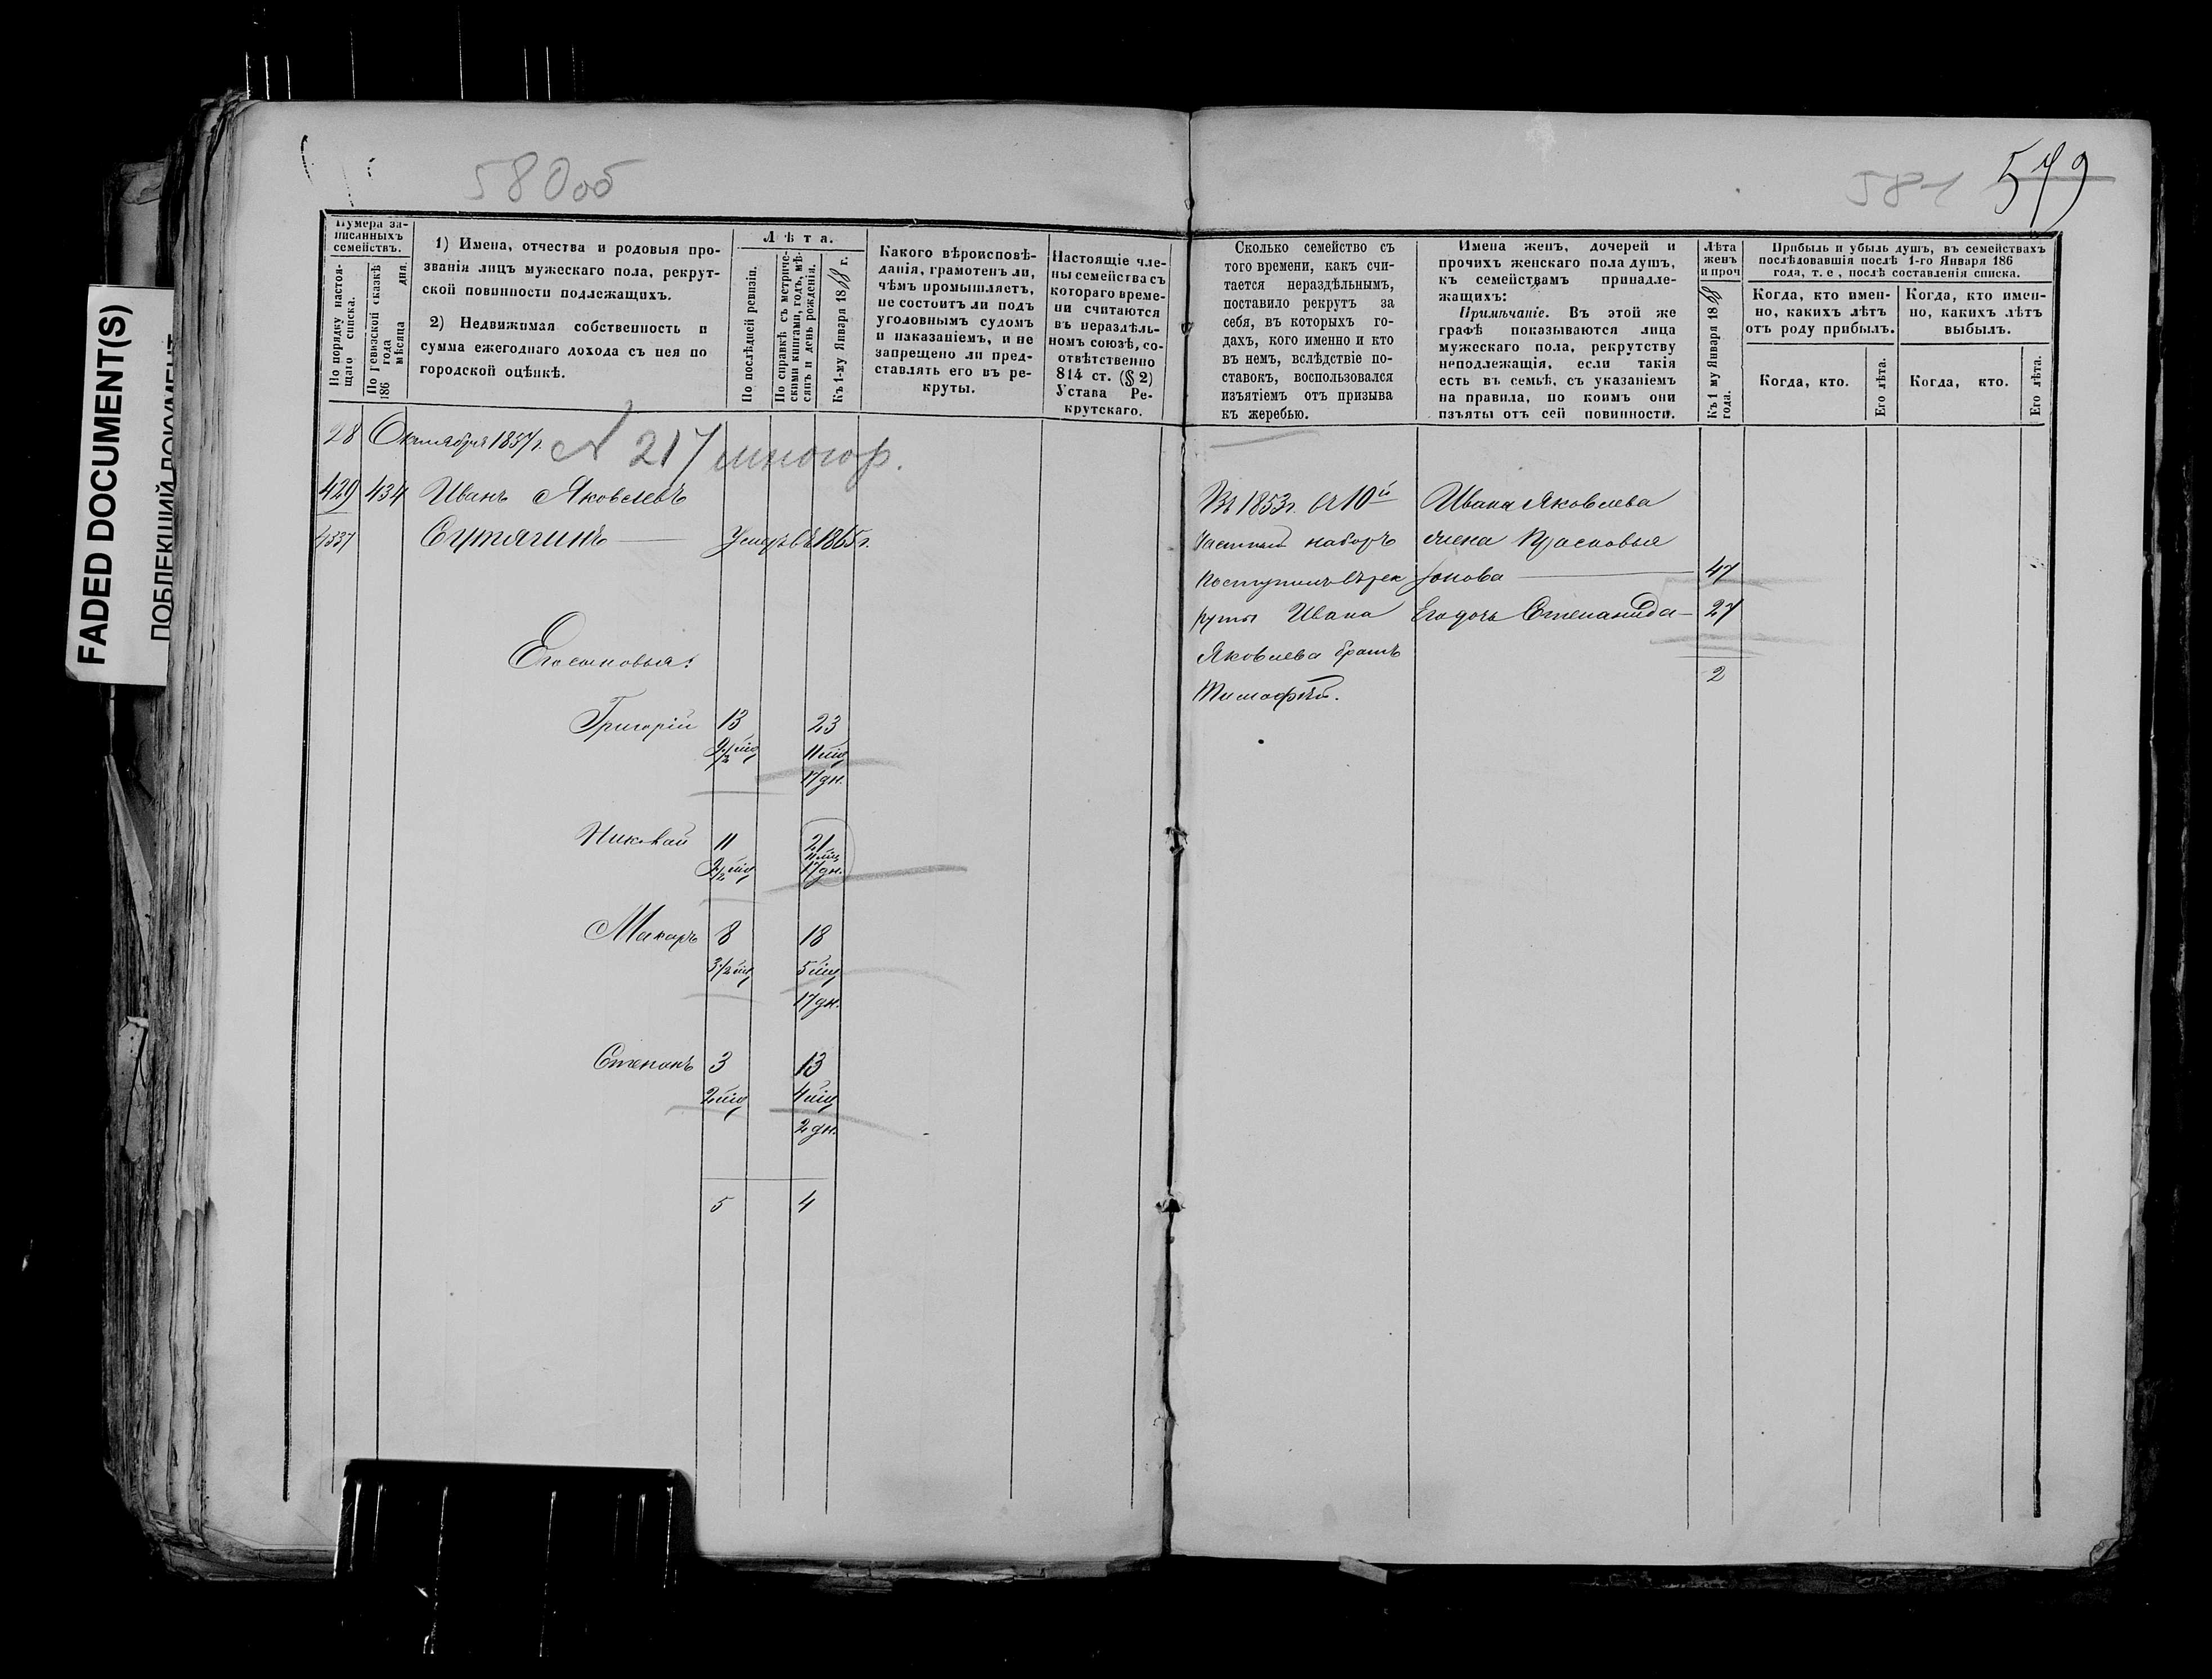 FADED DOCUMENT(S)
ПОБЛЕКШИЙ ДОКУМЕНТ
580об
581 579
Нумера за-
писанныхъ
семействъ.
По порядку настоя-
щаго списка.
По ревизской сказкѣ
186 года
мѣсяца дня.
1) Имена, отчества и родовыя про-
званія лицъ мужескаго пола, рекрут-
ской повинности подлежащихъ.
2) Недвижимая собственность и
сумма ежегоднаго дохода съ нея по
городской оцѣнкѣ.
Лѣта.
По послѣдней ревизіи.
По справкѣ съ метриче-
скими книгами, годъ, мѣ-
сяцъ и день рожденія.
Къ 1-му Января 1868 г.
Какого вѣроисповѣ-
данія, грамотенъ ли,
чѣмъ промышляетъ,
не состоитъ ли подъ
уголовнымъ судомъ
и наказаніемъ, и не
запрещено ли пред-
ставлять его въ ре-
круты.
Настоящіе чле-
ны семейства съ
котораго време-
ни считаются
въ нераздѣль-
номъ союзѣ, со-
отвѣтственно
814 ст. (§ 2)
Устава Ре-
крутскаго.
Сколько семейство съ
того времени, какъ счи-
тается нераздѣльнымъ,
поставило рекрутъ за
себя, въ которыхъ го-
дахъ, кого именно и кто
въ немъ, вслѣдствіе по-
ставокъ, воспользовался
изъятіемъ отъ призыва
къ жеребью.
Имена женъ, дочерей и
прочихъ женскаго пола душъ,
къ семействамъ принадле-
жащихъ:
Примѣчаніе. Въ этой же
графѣ показываются лица
мужескаго пола, рекрутству
неподлежащія, если такія
есть въ семьѣ, съ указаніемъ
на правила, по коимъ они
изъяты отъ сей повинности.
Лѣта
женъ
и проч
Къ 1 му Января 1868
года.
Прибыль и убыль душъ, въ семействахъ
послѣдовавшія послѣ 1-го Января 186
года, т. е, послѣ составленія списка.
Когда, кто имен-
но, какихъ лѣтъ
отъ роду прибылъ.
Когда, кто имен-
но, какихъ лѣтъ
выбылъ.
Когда, кто.
Его лѣта.
Когда, кто.
Его лѣта.
28 Октября 1857 г. № 217 многор.
429 434 Иванъ Яковлевъ
Сутягинъ — Умеръ въ 1865 г.
Его сыновья:
Григорій 13 23
11 мц
17 дн.
Николай 11 21
11 мц
17 дн.
Макаръ 8 18
3 1/2 мц 5 мц
17 дн.
Степанъ 3 13
2 мц 4 мц
2 дн.
5 4
Въ 1853 г. въ 10й
частный наборъ
поступилъ въ рек
руты Ивана
Яковлева братъ
Тимофѣй.
Ивана Яковлева
жена Прасковья
47
Его дочь Степанида — 27
2